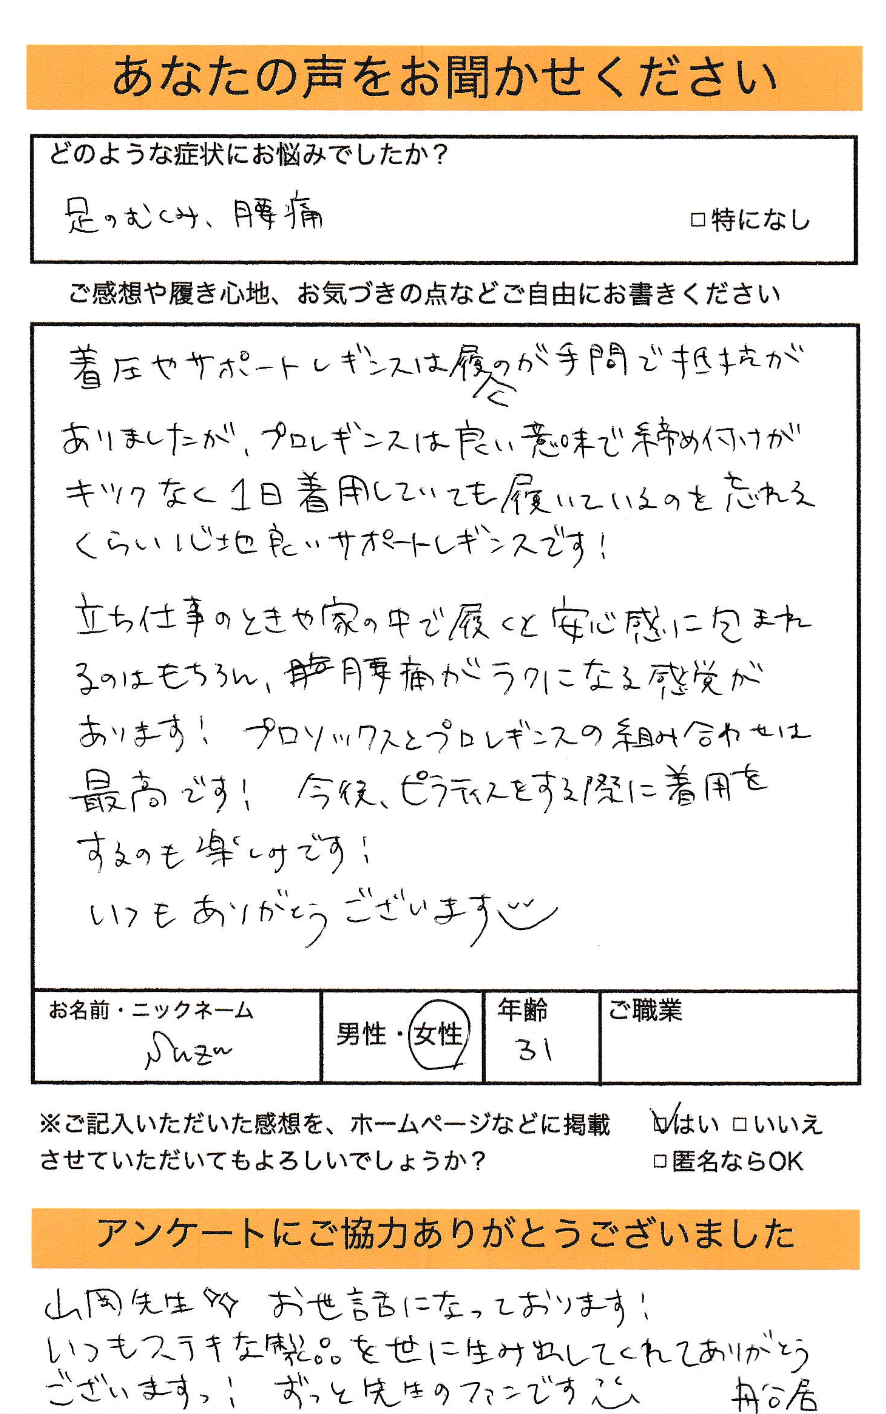 あなたの声をお聞かせください
どのような症状にお悩みでしたか？
足のむくみ、腰痛
□特になし
ご感想や履き心地、お気づきの点などご自由にお書きください
着圧やサポートレギンスは履くのが手間で抵抗が
ありましたが、プロレギンスは良い意味で締め付けが
キツクなく1日着用していても履いているのを忘れる
くらい心地良いサポートレギンスです！
立ち仕事のときや家の中で履くと安心感に包まれ
るのはもちろん、腰痛がラクになる感覚が
あります！ プロソックスとプロレギンスの組み合わせは
最高です！ 今後、ピラティスをする際に着用を
するのも楽しみです！
いつもありがとうございます
お名前・ニックネーム
Suzu
男性・女性
年齢
31
ご職業
※ご記入いただいた感想を、ホームページなどに掲載
させていただいてもよろしいでしょうか？
☑はい □いいえ
□匿名ならOK
アンケートにご協力ありがとうございました
山岡先生 お世話になっております！
いつもステキな製品を世に生み出してくれてありがとう
ございますっ！ ずっと先生のファンです